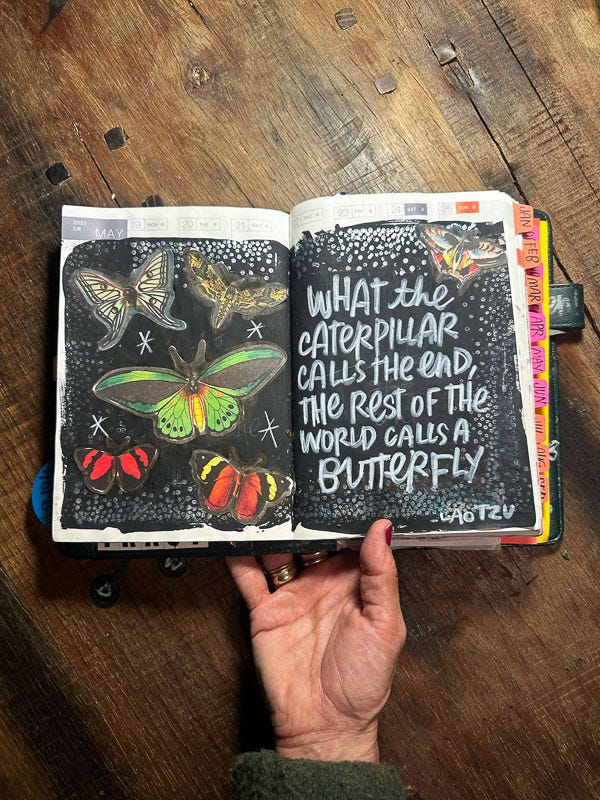 2025
5月
MAY
19 MON 月
20 TUE 火
21 WED 水
23 FRI 金
24 SAT 土
25 SUN 日
WHAT the
CATERPILLAR
CALLS THE END,
THE REST OF THE
WORLD CALLS A
BUTTERFLY
-LAOTZU
JAN
FEB
MAR
APR
MAY
JUN
JUL
AUG
SEP